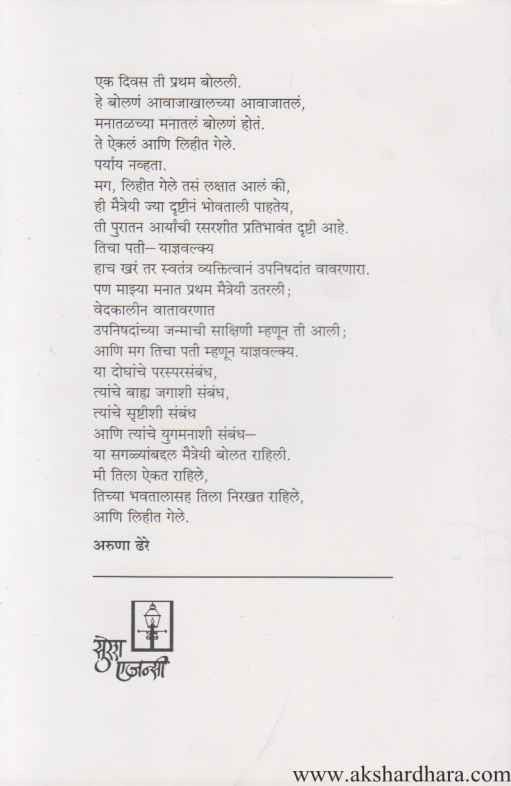 एक दिवस ती प्रथम बोलली.
हे बोलणं आवाजाखालच्या आवाजातलं,
मनातळच्या मनातलं बोलणं होतं.
ते ऐकलं आणि लिहीत गेले.
पर्याय नव्हता.
मग, लिहीत गेले तसं लक्षात आलं की,
ही मैत्रेयी ज्या दृष्टीनं भोवताली पाहतेय,
ती पुरातन आर्यांची रसरशीत प्रतिभावंत दृष्टी आहे.
तिचा पती— याज्ञवल्क्य
हाच खरं तर स्वतंत्र व्यक्तित्वानं उपनिषदांत वावरणारा.
पण माझ्या मनात प्रथम मैत्रेयी उतरली;
वेदकालीन वातावरणात
उपनिषदांच्या जन्माची साक्षिणी म्हणून ती आली;
आणि मग तिचा पती म्हणून याज्ञवल्क्य.
या दोघांचे परस्परसंबंध,
त्यांचे बाह्य जगाशी संबंध,
त्यांचे सृष्टीशी संबंध
आणि त्यांचे युगमनाशी संबंध—
या सगळ्यांबद्दल मैत्रेयी बोलत राहिली.
मी तिला ऐकत राहिले,
तिच्या भवतालासह तिला निरखत राहिले,
आणि लिहीत गेले.
अरुणा ढेरे
सुरेश
एजन्सी
www.akshardhara.com